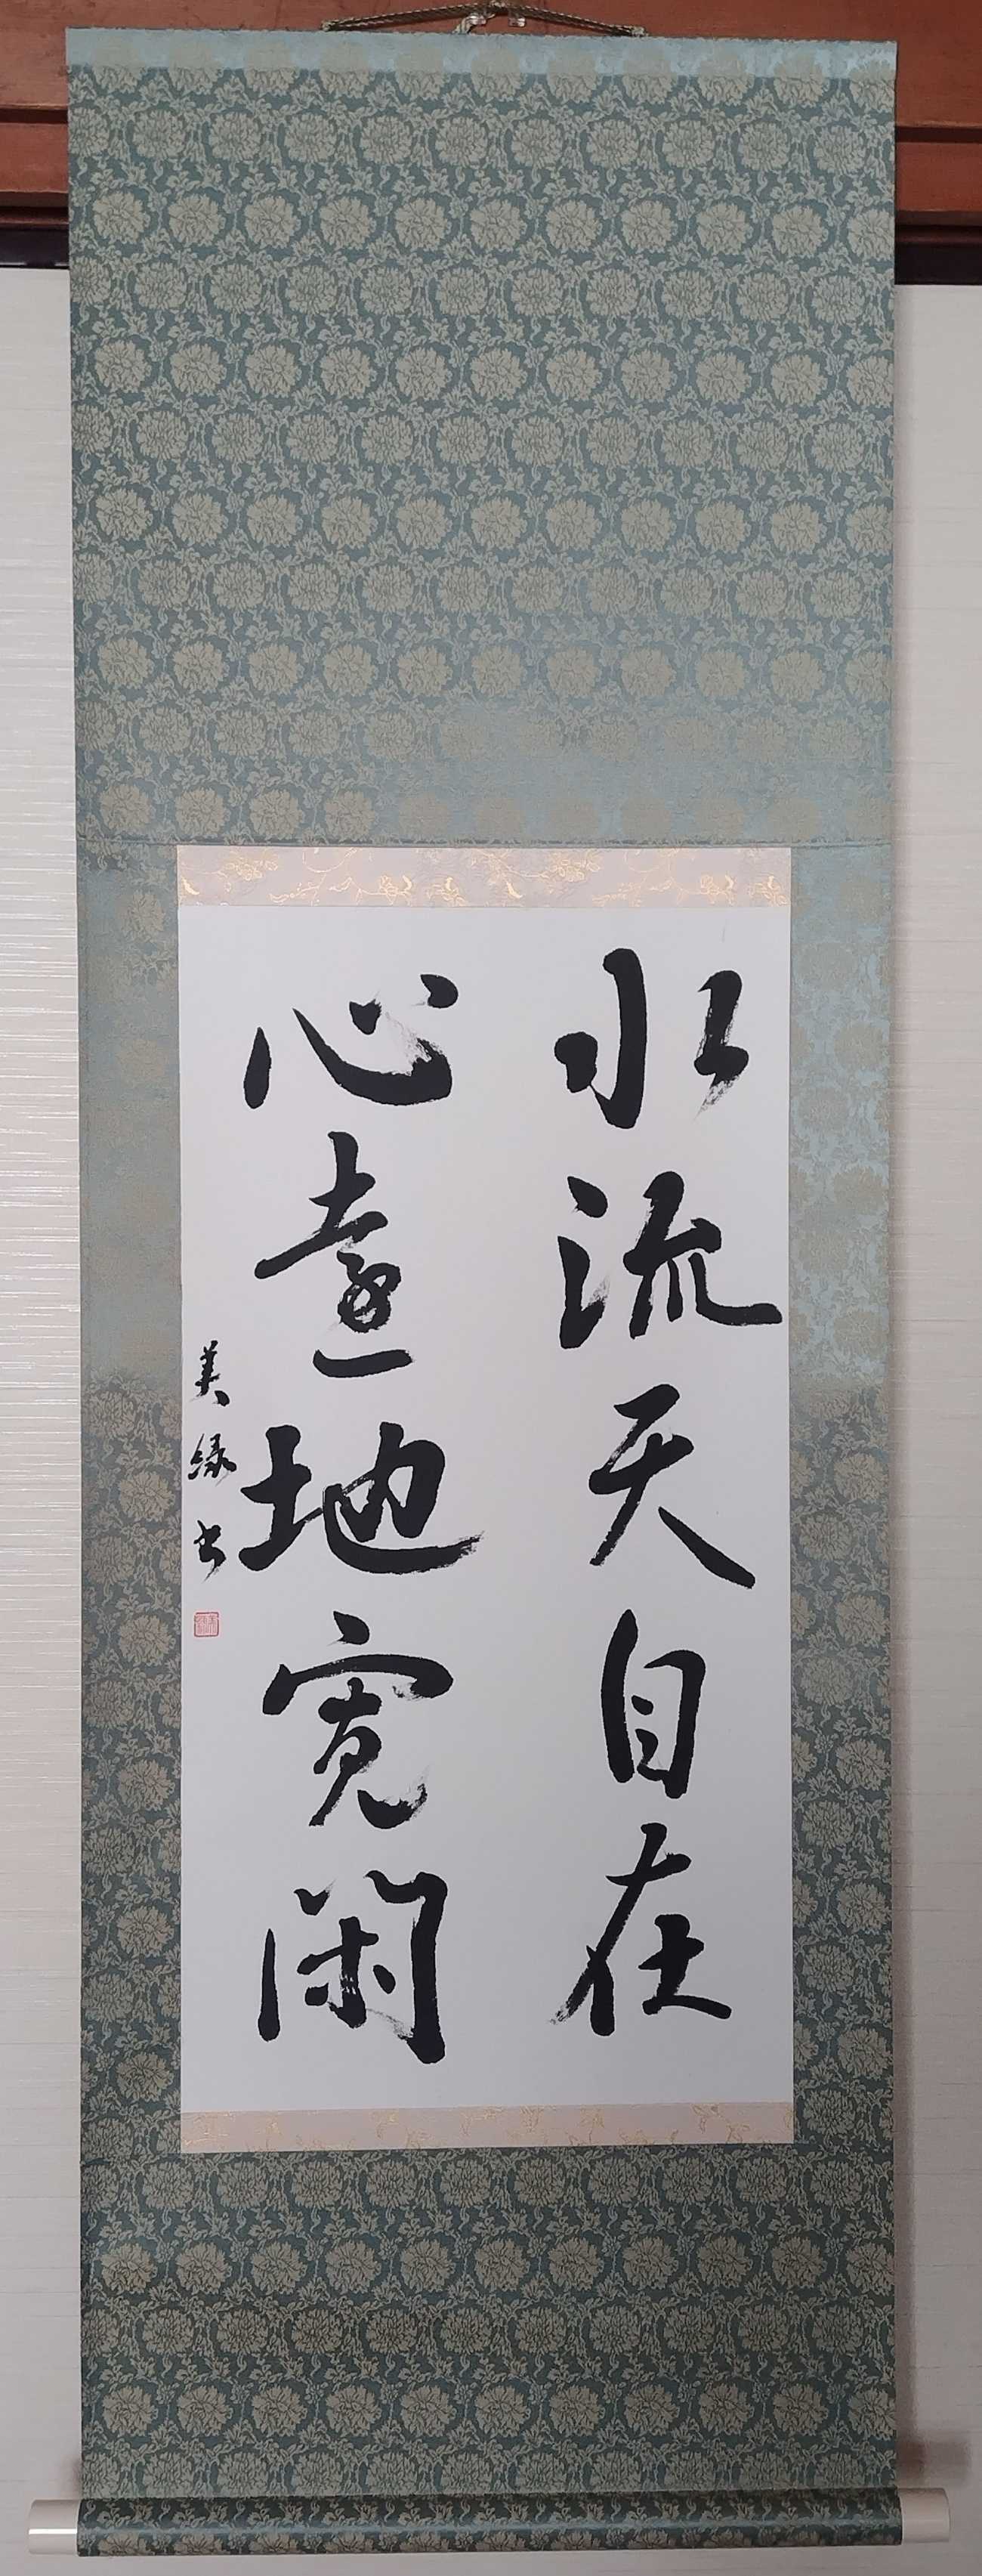 水流天自在
心遠地寛閑
美緑書